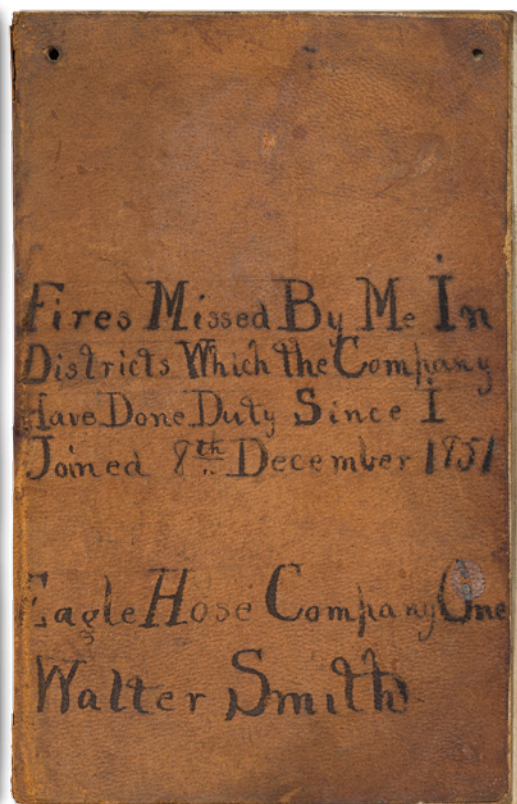 Fires Missed By Me In
Districts Which the Company
Have Done Duty Since I
Joined 8th December 1851
Eagle Hose Company One
Walter Smith